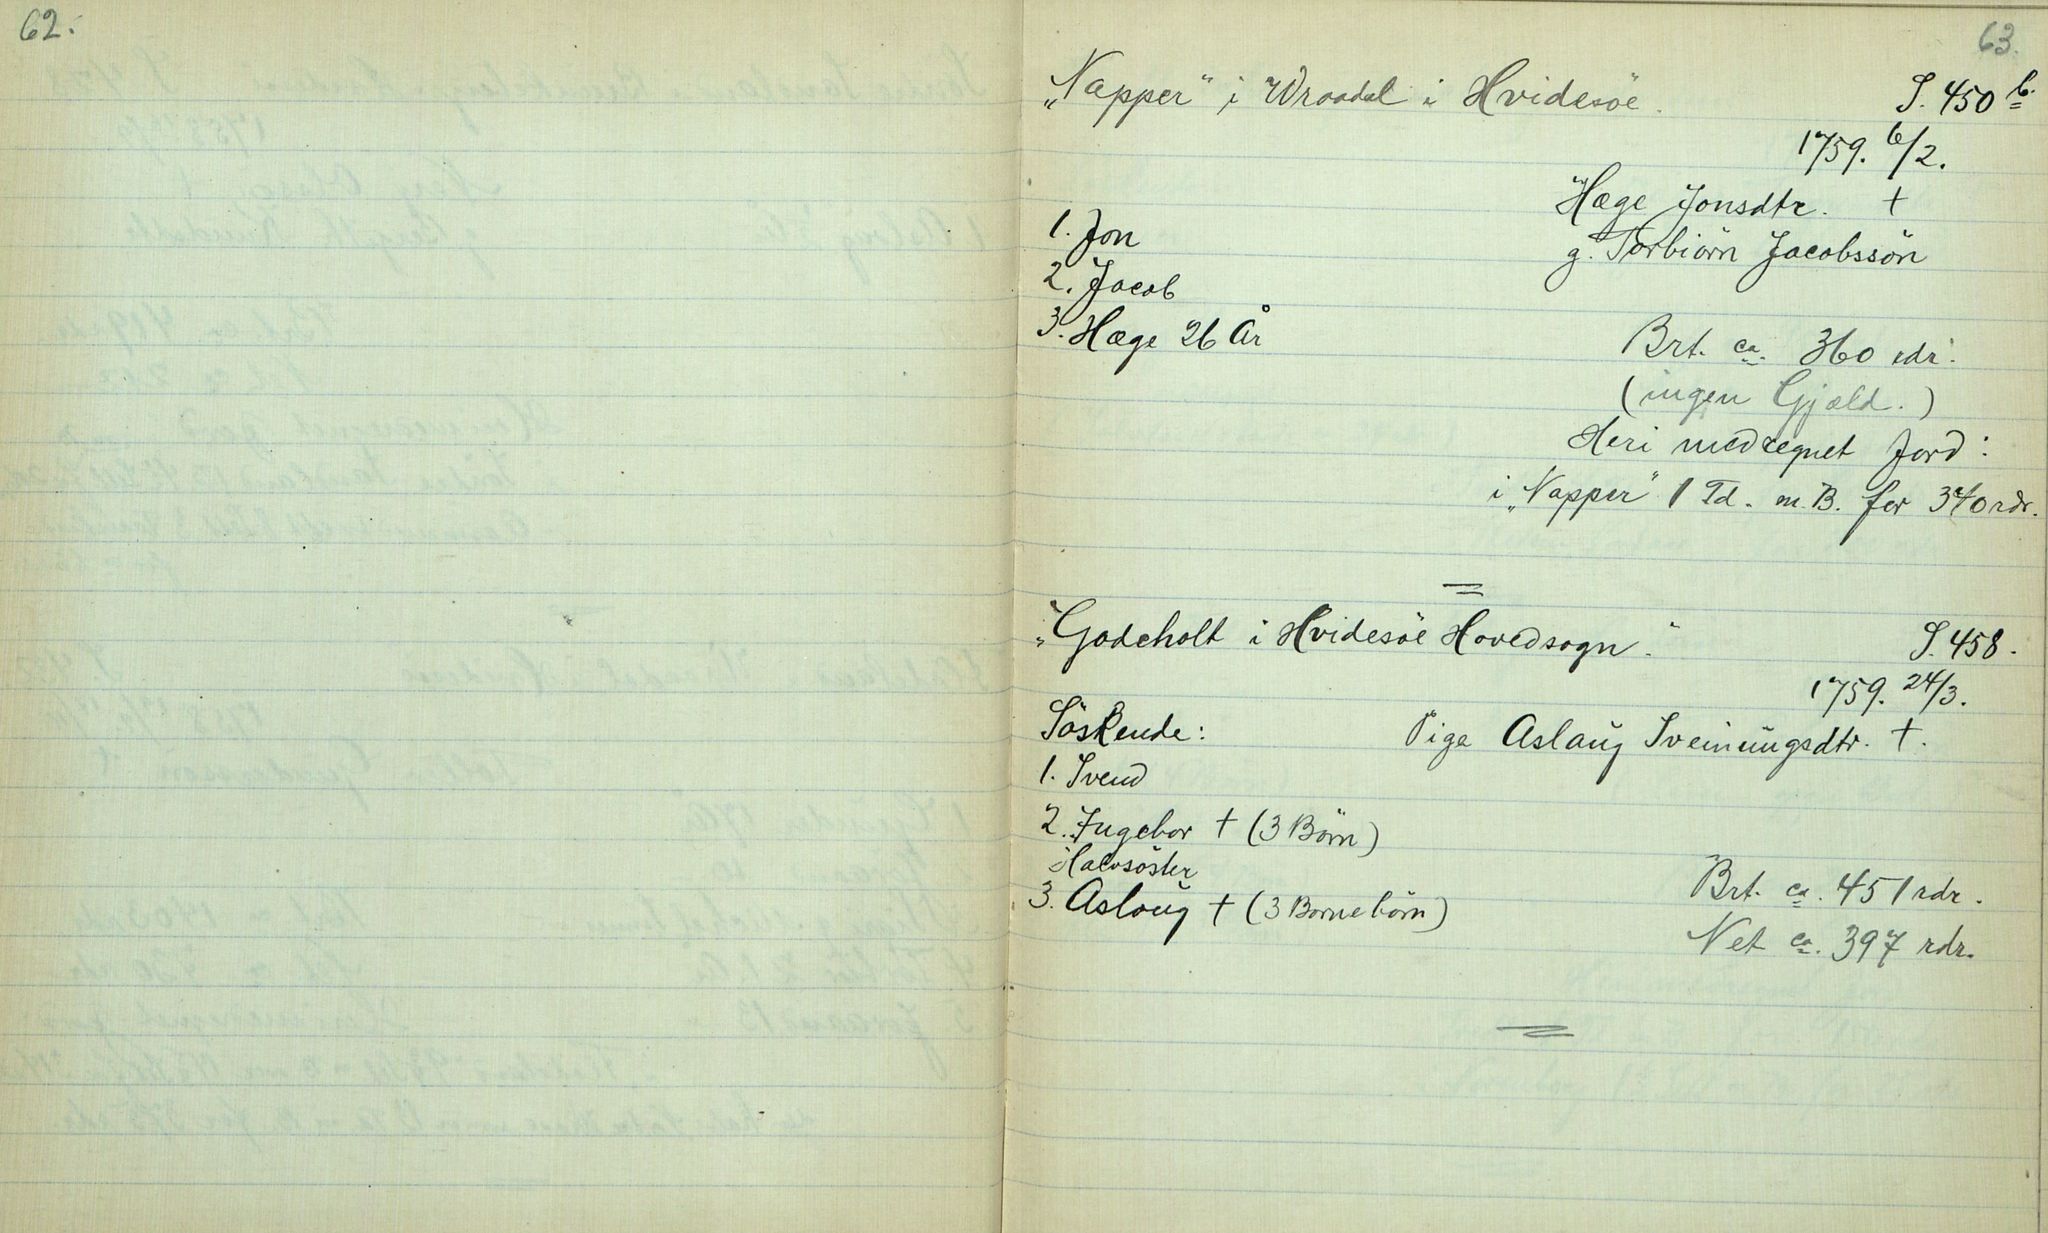 62.
63.
„Napper" i Wraadal i Hvidesöe.
S. 450 b.
1759. 6/2.
Hæge Jonsdtr. †
1. Jon
g. Torbiörn Jacobssön
2. Jacob
3. Hæge 26 År
Brt. ca. 360 rdr.
(ingen Gjæld.)
Heri medregnet Jord:
i „Napper" 1 Td. m. B. for 340 rdr.
„Godeholt i Hvidesöe Hovedsogn."
S. 458.
1759. 24/3.
Söskende:
Pige Aslaüg Sveinüngsdtr. †.
1. Svend
2. Ingebor † (3 Börn)
Halvsöster
3. Aslaüg † (3 Barnebörn)
Brt. ca. 451 rdr.
Net ca. 397 rdr.